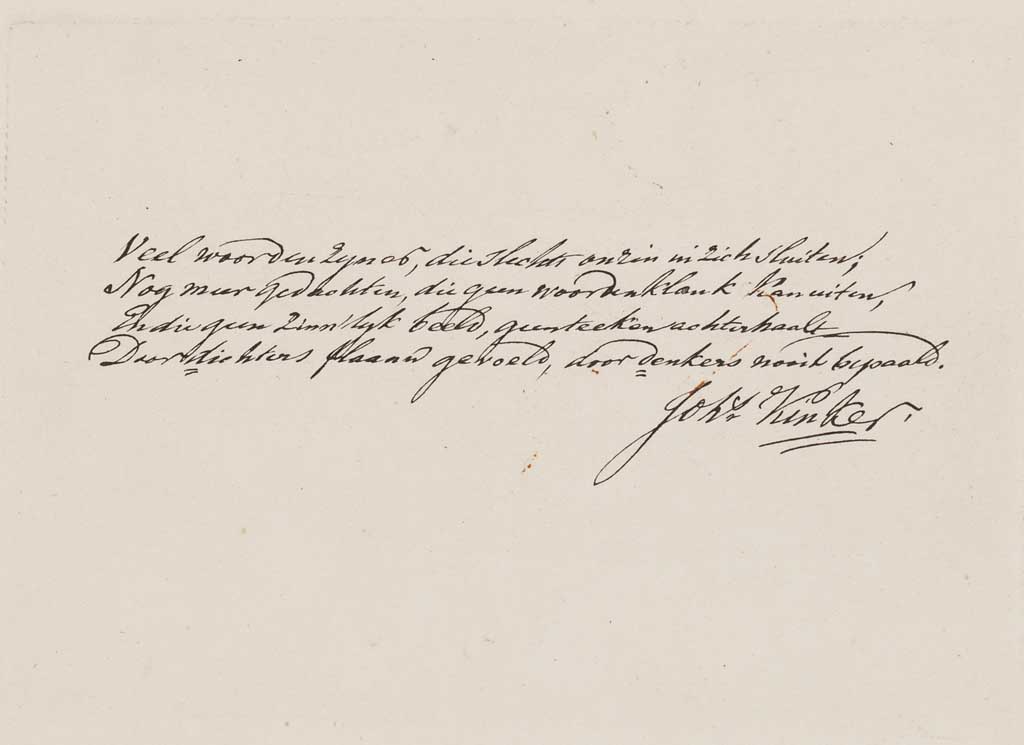 Veel woorden zyn er, die slechts onzin in zich sluiten;
Nog meer gedachten, die geen woordenklank kan uiten,
En die geen zinn'lyk beeld, geen teeken achterhaalt
Door dichters flaauw gevoeld, door denkers nooit bepaald.
Johs. Kinker.